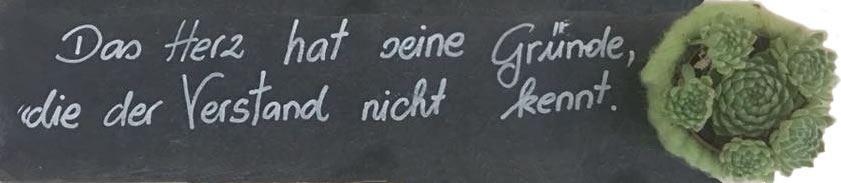 Das Herz hat seine Gründe,
die der Verstand nicht kennt.